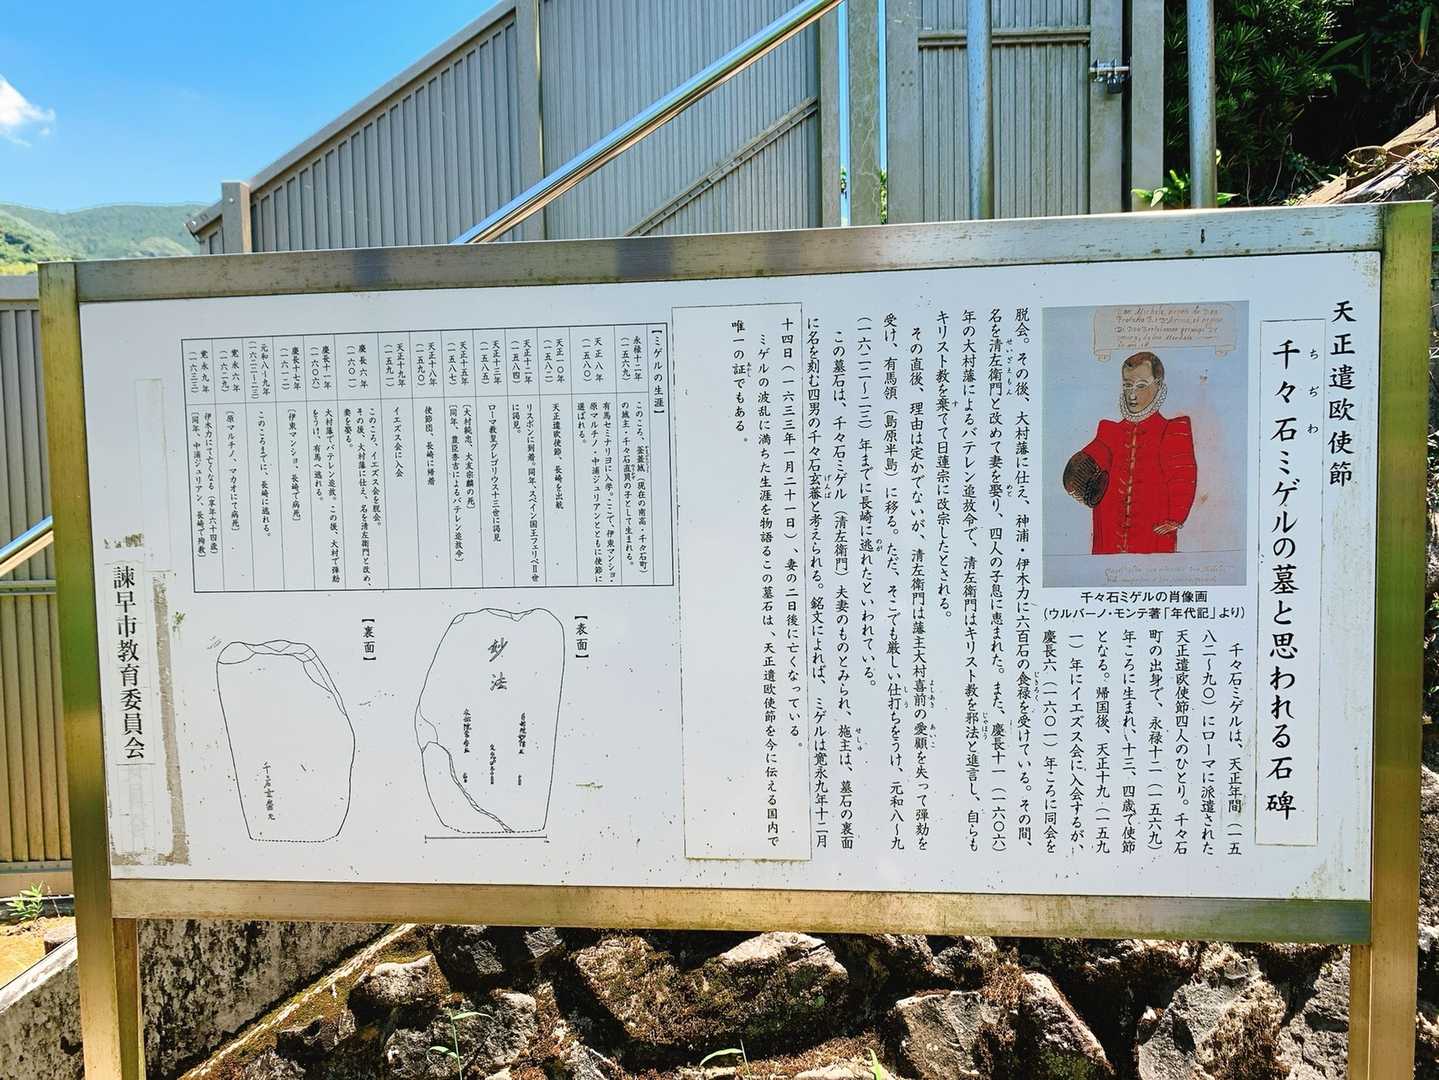 天正遣欧使節
千々石ミゲルの墓と思われる石碑
ちぢわ
千々石ミゲルの肖像画
(ウルバーノ・モンテ著「年代記」より)
千々石ミゲルは、天正年間(一五
八二〜九〇)にローマに派遣された
天正遣欧使節四人のひとり。千々石
町の出身で、永禄十二(一五六九)
年ころに生まれ、十三、四歳で使節
となる。帰国後、天正十九(一五九
一)年にイエズス会に入会するが、
慶長六(一六〇一)年ころに同会を
脱会。その後、大村藩に仕え、神浦・伊木力に六百石の食禄を受けている。その間、
名を清左衛門と改めて妻を娶り、四人の子息に恵まれた。また、慶長十一(一六〇六)
年の大村藩によるバテレン追放令で、清左衛門はキリスト教を邪法と進言し、自らも
キリスト教を棄てて日蓮宗に改宗したとされる。
その直後、理由は定かでないが、清左衛門は藩主大村喜前の愛顧を失って弾劾を
受け、有馬領(島原半島)に移る。ただ、そこでも厳しい仕打ちをうけ、元和八〜九
(一六二二〜二三)年までに長崎に逃れたといわれている。
この墓石は、千々石ミゲル(清左衛門)夫妻のものとみられ、施主は、墓石の裏面
に名を刻む四男の千々石玄蕃と考えられる。銘文によれば、ミゲルは寛永九年十二月
十四日(一六三三年一月二十一日)、妻の二日後に亡くなっている。
ミゲルの波乱に満ちた生涯を物語るこの墓石は、天正遣欧使節を今に伝える国内で
唯一の証でもある。
【ミゲルの生涯】
永禄十二年
(一五六九)
このころ、釜蓋城(現在の南高・千々石町)
の城主・千々石直員の子として生まれる。
天正八年
(一五八〇)
有馬セミナリヨに入学。ここで、伊東マンショ・
原マルチノ・中浦ジュリアンとともに使節に
選ばれる。
天正一〇年
(一五八二)
天正遣欧使節、長崎を出航
天正十二年
(一五八四)
リスボンに到着。同年、スペイン国王フェリペⅡ世
に謁見。
天正十三年
(一五八五)
ローマ教皇グレゴリウス十三世に謁見
天正十五年
(一五八七)
(大村純忠、大友宗麟の死)
(同年、豊臣秀吉によるバテレン追放令)
天正十八年
(一五九〇)
使節団、長崎に帰着
天正十九年
(一五九一)
イエズス会に入会
慶長六年
(一六〇一)
このころ、イエズス会を脱会。
その後、大村藩に仕え、名を清左衛門と改め、
妻を娶る。
慶長十一年
(一六〇六)
大村藩でバテレン追放。この後、大村で弾劾
をうけ、有馬へ逃れる。
慶長十七年
(一六一二)
(伊東マンショ、長崎で病死)
元和八〜九年
(一六二二〜二三)
このころまでに、長崎に逃れる。
寛永六年
(一六二九)
(原マルチノ、マカオにて病死)
寛永九年
(一六三三)
伊木力にて亡くなる(享年六十四歳)
(同年、中浦ジュリアン、長崎で殉教)
【表面】
妙法
【裏面】
千々石玄蕃允
諫早市教育委員会